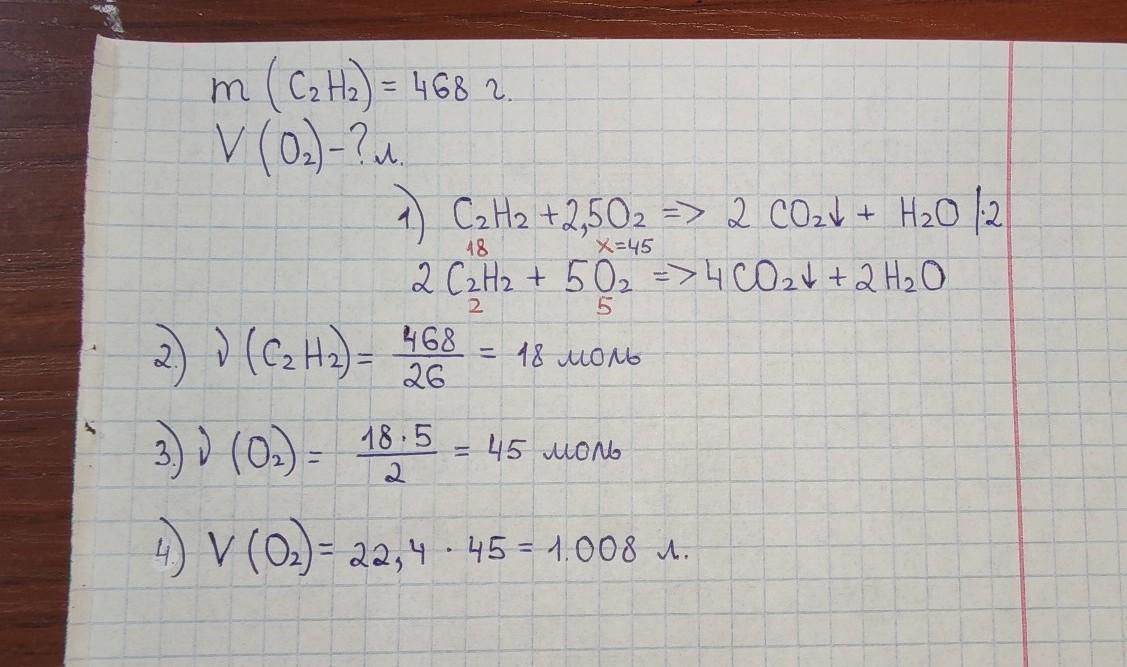 m (C₂H₂) = 468 г.
V (O₂) - ? л.
1) C₂H₂ + 2,5O₂ => 2 CO₂↓ + H₂O |·2
18 x=45
2 C₂H₂ + 5O₂ => 4CO₂↓ + 2H₂O
2 5
2.) ν (C₂H₂) = 468/26 = 18 моль
3.) ν (O₂) = 18·5/2 = 45 моль
4.) V (O₂) = 22,4 · 45 = 1.008 л.